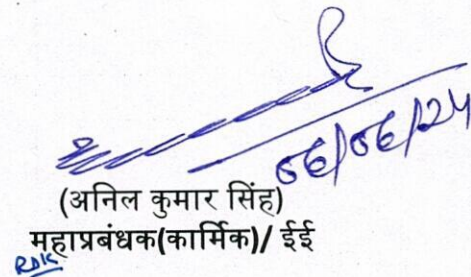 06/06/24
(अनिल कुमार सिंह)
महाप्रबंधक(कार्मिक)/ ईई